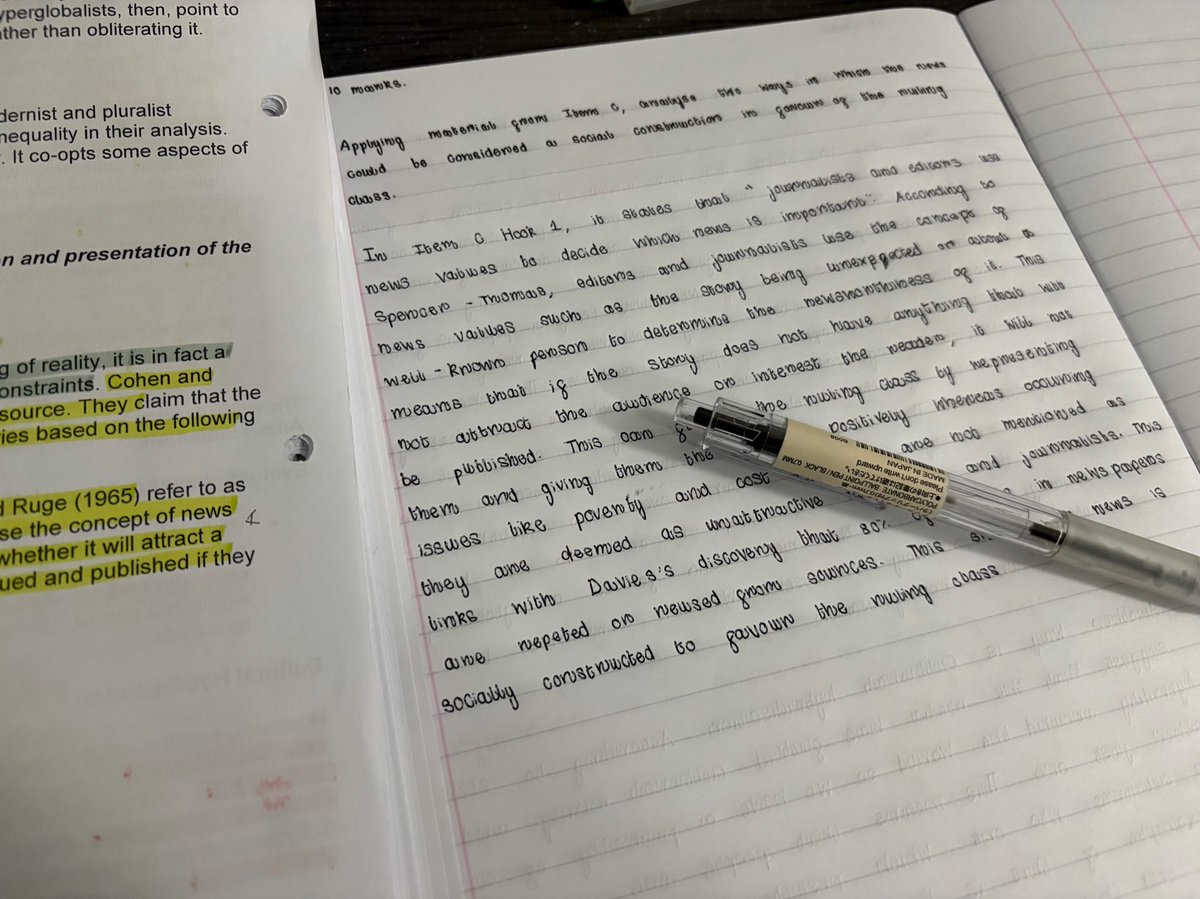 yperglobalists, then, point to
ther than obliterating it.
dernist and pluralist
nequality in their analysis.
. It co-opts some aspects of
n and presentation of the
g of reality, it is in fact a
onstraints. Cohen and
source. They claim that the
ries based on the following
d Ruge (1965) refer to as
se the concept of news
whether it will attract a
ued and published if they
10 marks.
Applying material from Item C, analyse two ways in which the news
could be considered a social construction in favour of the ruling
class.
In Item C Hook 1, it states that "journalists and editors use
news values to decide which news is important". According to
Spencer - Thomas, editors and journalists use the concept of
news values such as the story being unexpected or about a
well - known person to determine the newsworthiness of it. This
means that if the story does not have anything that will
not attract the audience or interest the reader, it will not
be published. This can the ruling class by representing
them and giving them the positively whereas occuring
issues like poverty and cost are not mentioned as
they are deemed as unattractive and journalists. This
links with Davies's discovery that 80% in newspapers
are repeted or reused from sources. This news is
socially constructed to favour the ruling class
POLYCARBONATE BALLPOINT PEN / BLACK 0.7MM
Please don't write upward
MADE IN JAPAN